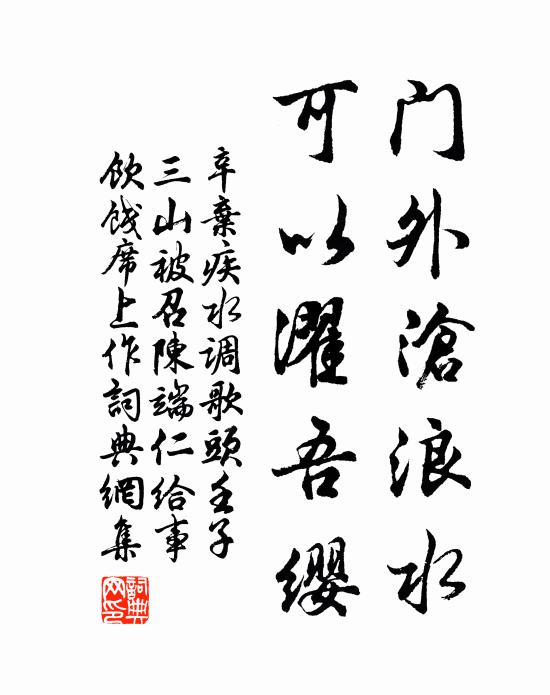 门外滄浪水
可以濯吾缨
辛棄疾水调歌頭壬子
三山被召陳端仁给事
飲餞席上作詞典網集
詞典